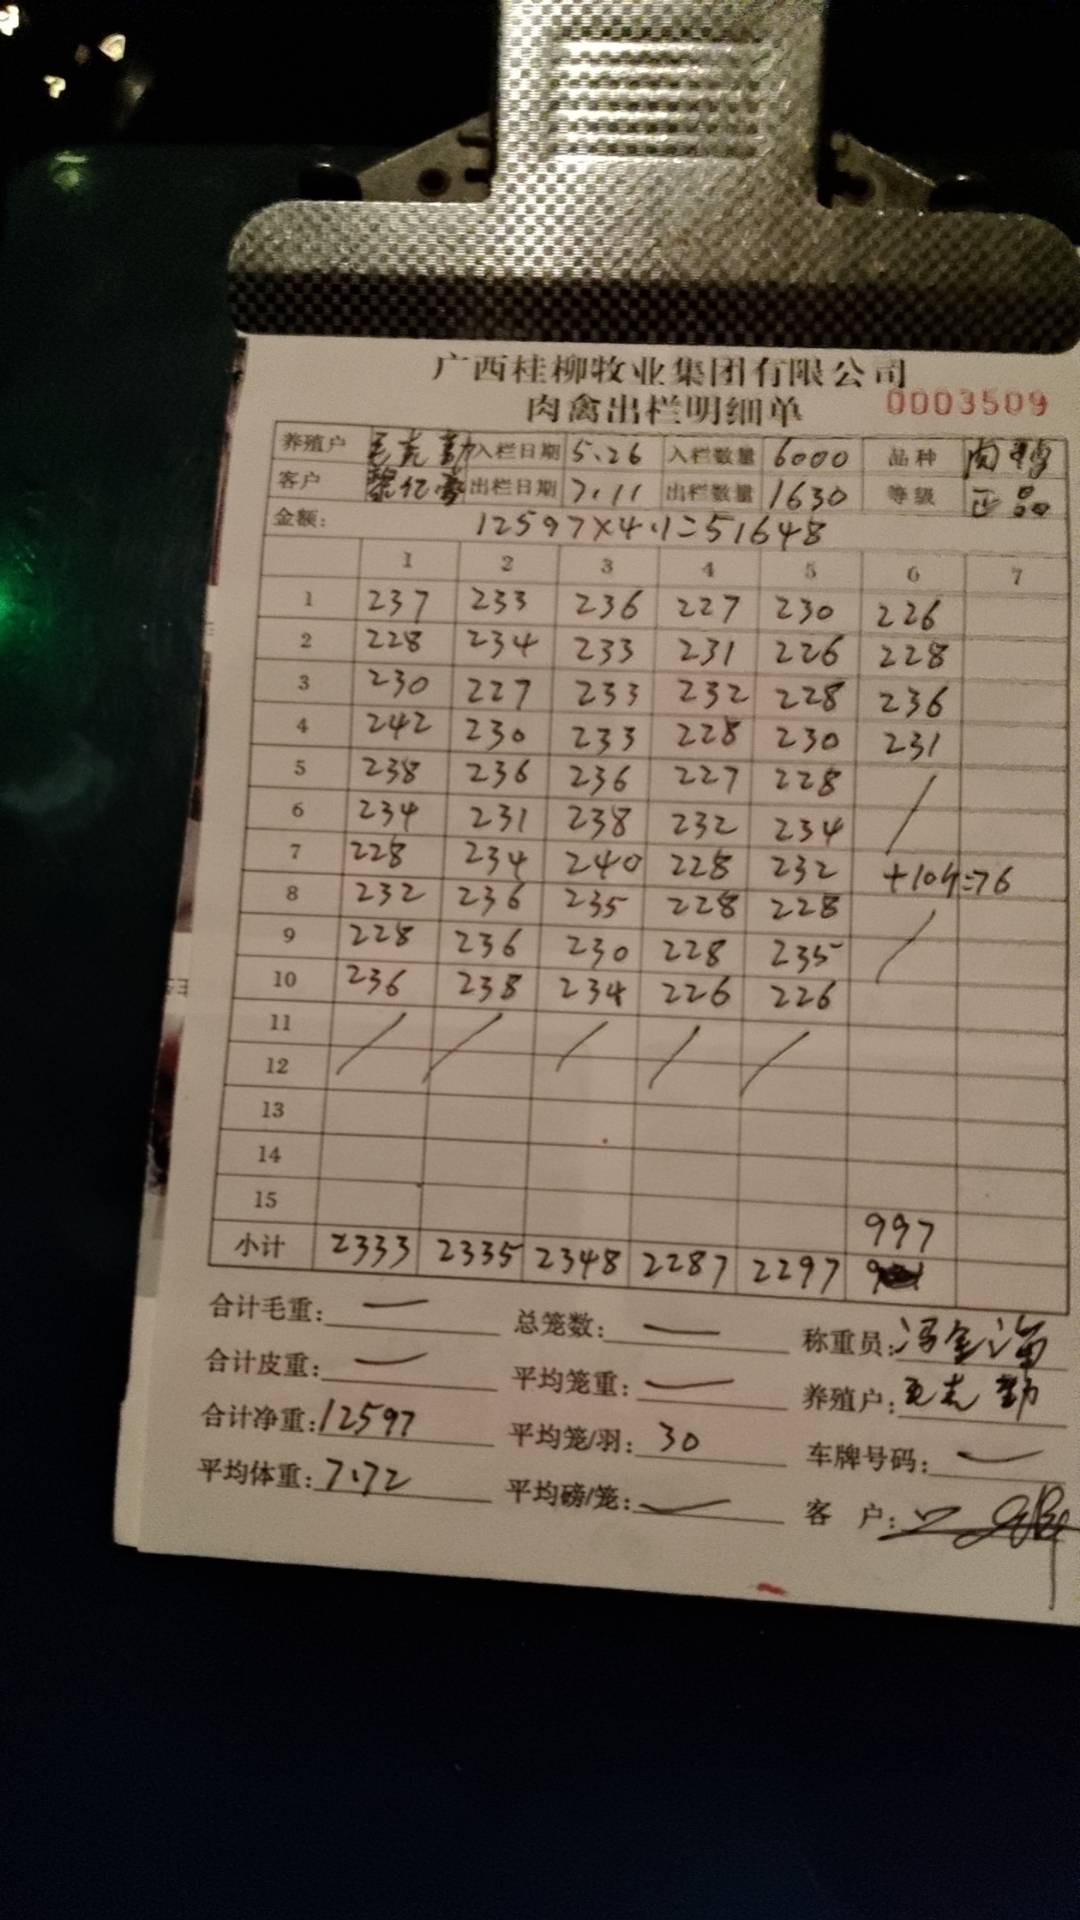 广西桂柳牧业集团有限公司
肉禽出栏明细单 0003509
养殖户 入栏日期 5.26 入栏数量 6000 品种 肉鸭
客户 黎亿豪 出栏日期 7.11 出栏数量 1630 等级 正品
金额: 12597×4.1=51648
1 2 3 4 5 6 7
1 237 233 236 227 230 226
2 228 234 233 231 226 228
3 230 227 233 232 228 236
4 242 230 233 228 230 231
5 238 236 236 227 228 /
6 234 231 238 232 234
7 228 234 240 228 232 +10只=76
8 232 236 235 228 228 /
9 228 236 230 228 235
10 236 238 234 226 226
11 / / / / /
12
13
14
15 997
小计 2333 2335 2348 2287 2297
合计毛重: — 总笼数: — 称重员: 冯金海
合计皮重: — 平均笼重: — 养殖户:
合计净重: 12597 平均笼/羽: 30 车牌号码: —
平均体重: 7.72 平均磅/笼: — 客 户: